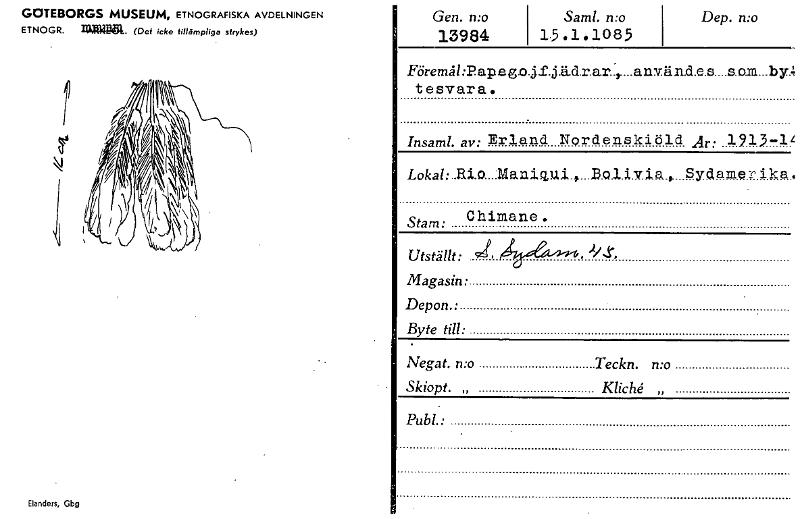 GÖTEBORGS MUSEUM, ETNOGRAFISKA AVDELNINGEN
ETNOGR. (Det icke tillämpliga strykes)
16 cm
Elanders, Gbg
Gen. n:o Saml. n:o Dep. n:o
13984 15.1.1085
Föremål: Papegojfjädrar, användes som by-
tesvara.
Insaml. av: Erland Nordenskiöld År: 1913-14
Lokal: Rio Maniqui, Bolivia, Sydamerika.
Stam: Chimane.
Utställt: S. Sydam. 45.
Magasin:
Depon.:
Byte till:
Negat. n:o Teckn. n:o
Skiopt. „ Kliché „
Publ.: